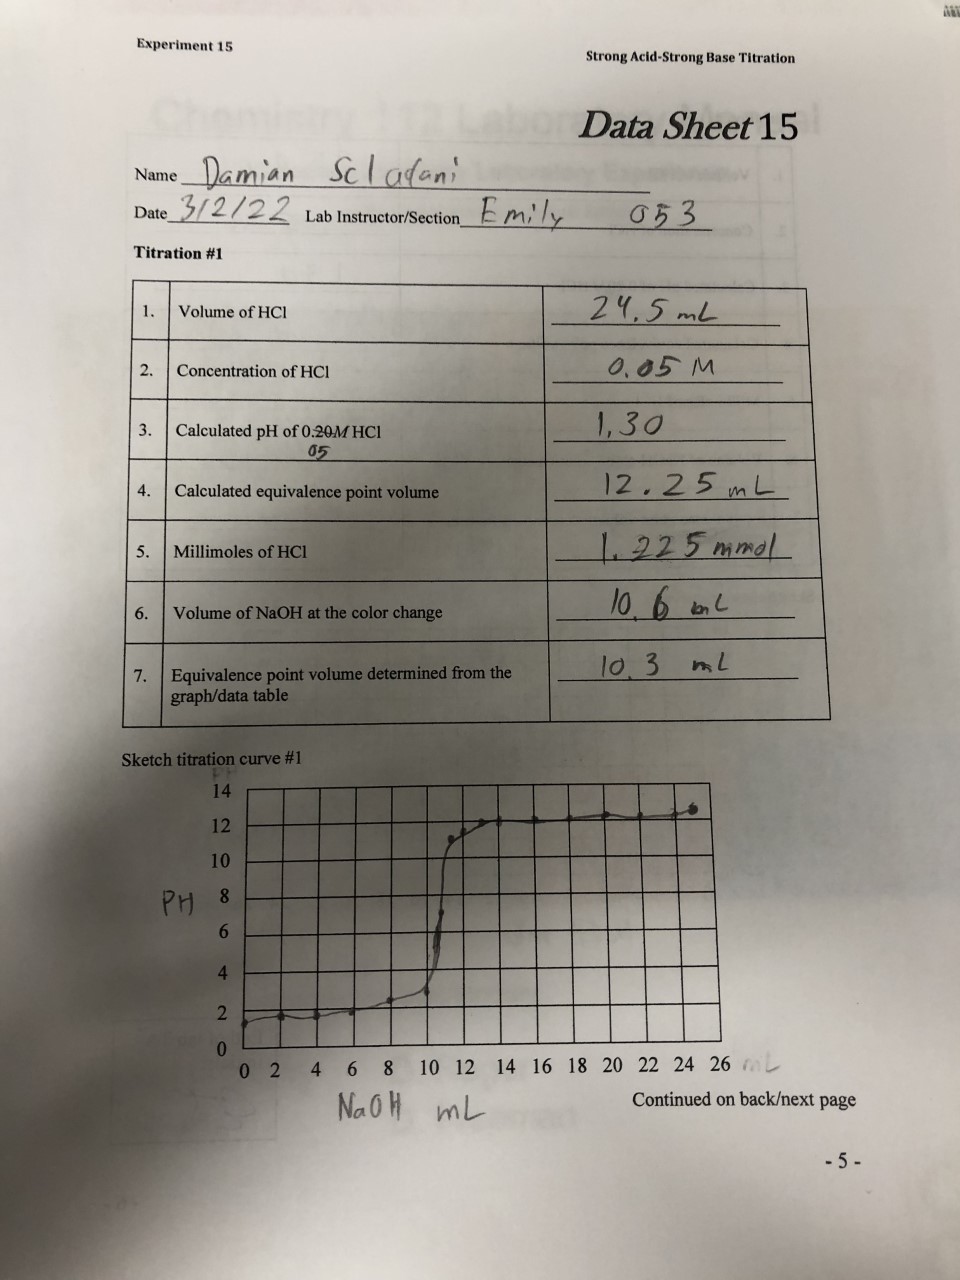 Experiment 15
Strong Acid-Strong Base Titration
Data Sheet 15
Name Damian Scladani
Date 3/2/22 Lab Instructor/Section Emily 053
Titration #1
1. Volume of HCl 24.5 mL
2. Concentration of HCl 0.05 M
3. Calculated pH of 0.20M HCl 1.30
05
4. Calculated equivalence point volume 12.25 mL
5. Millimoles of HCl 1.225 mmol
6. Volume of NaOH at the color change 10.6 mL
7. Equivalence point volume determined from the 10.3 mL
graph/data table
Sketch titration curve #1
PH
14
12
10
PH 8
6
4
2
0
0 2 4 6 8 10 12 14 16 18 20 22 24 26 mL
NaOH mL
Continued on back/next page
- 5 -